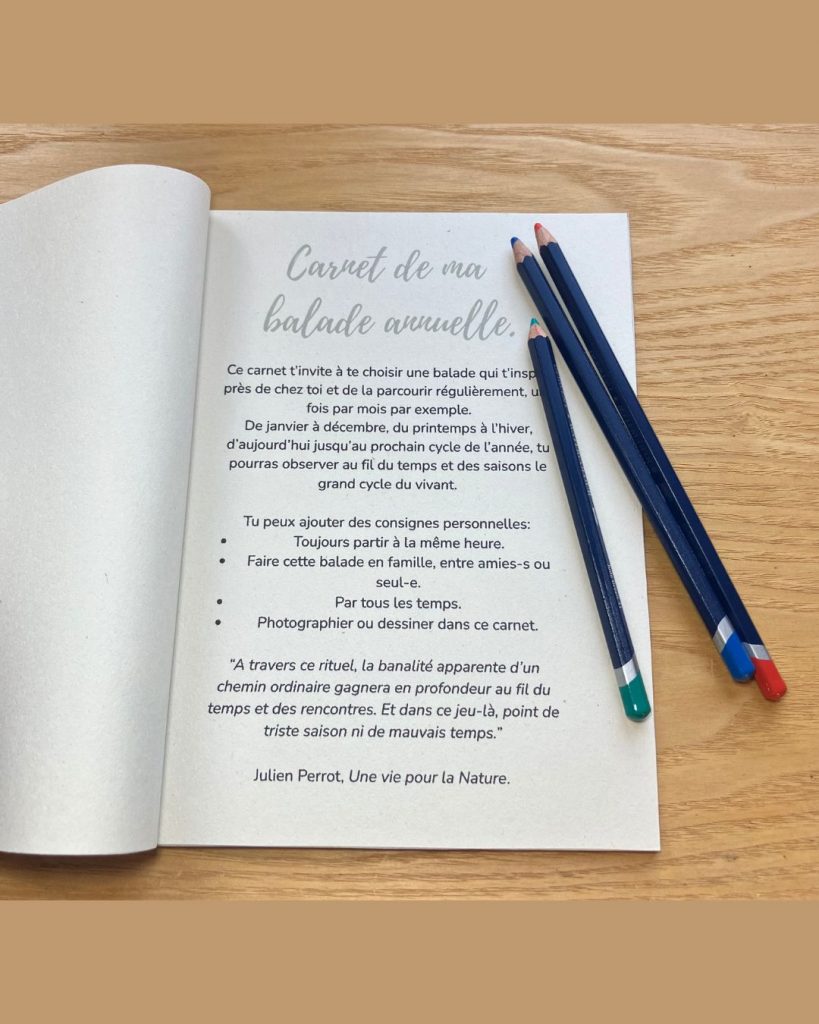 Carnet de ma
balade annuelle.
Ce carnet t'invite à te choisir une balade qui
près de chez toi et de la parcourir régulièrement,
fois par mois par exemple.
De janvier à décembre, du printemps à l'hiver,
d'aujourd'hui jusqu'au prochain cycle de l'année, tu
pourras observer au fil du temps et des saisons le
grand cycle du vivant.
Tu peux ajouter des consignes personnelles:
• Toujours partir à la même heure.
• Faire cette balade en famille, entre amies-s ou
seul-e.
• Par tous les temps.
• Photographier ou dessiner dans ce carnet.
“A travers ce rituel, la banalité apparente d'un
chemin ordinaire gagnera en profondeur au fil du
temps et des rencontres. Et dans ce jeu-là, point de
triste saison ni de mauvais temps.”
Julien Perrot, Une vie pour la Nature.